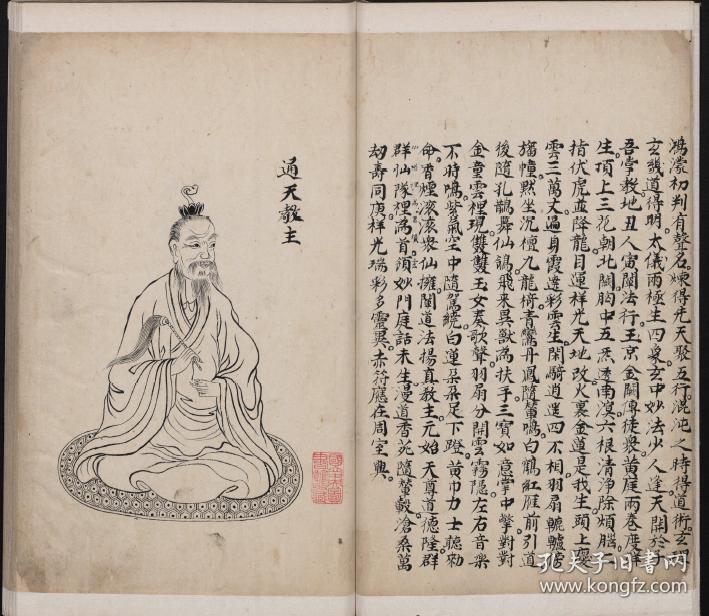 鴻濛初判有聲名。煉得先天聚五行。混沌之時得道術玄
玄幾道得明。太儀兩極生四象。玄中妙法少人逢天開於子
吾掌教地丑人寅闡法行。玉京金闕傳徒衆黃庭兩卷度
生頂上三花朝北闕胸中五炁透南溟六根清淨除煩惱一
指伏虎並降龍目運祥光天地改火裏金道是我生頭上慶
雲三萬丈遍身霞遶彩雲生閑騎逍遥四不相羽扇轆轤
旛幢默坐沉檀九龍椅青鸞丹鳳隨鑾鳴白鶴紅雁前引道
後隨孔鵲舞仙鴿飛來異獸為扶手三寶如意掌中擎對對
金童雲裡現雙雙玉女奏歌聲羽扇分開雲霧隱左右音樂
不時鳴紫氣空中隨駕繞白蓮朵朵足下蹬黃巾力士聽勅
命香煙滾滾衆仙擁闡道法揚真教主元始天尊道德隆群
群仙隊裡為首領妙門庭話未生漫道香死隨鰲殼滄桑萬
劫壽同庚祥光瑞彩多靈異赤符應在周室興。
通天教主
孔夫子旧书网
www.kongfz.com